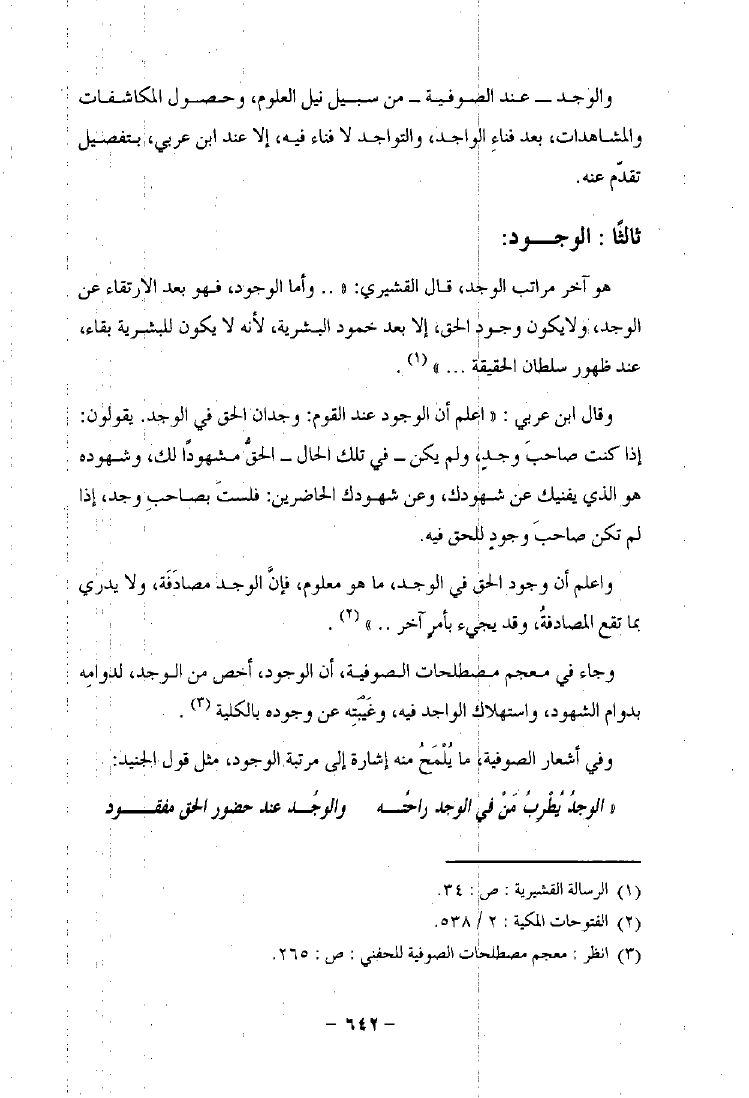 والوجد ــ عند الصوفية ــ من سبيل نيل العلوم، وحصول المكاشفات
والمشاهدات، بعد فناءِ الواجد، والتواجد لا فناء فيه، إلا عند ابن عربي، بتفصيل
تقدّم عنه.
ثالثًا : الوجود:
هو آخر مراتب الوجد، قال القشيري: « .. وأما الوجود، فهو بعد الارتقاء عن
الوجد، ولايكون وجود الحق، إلا بعد خمود البشرية، لأنه لا يكون للبشرية بقاء،
عند ظهور سلطان الحقيقة ... » (١) .
وقال ابن عربي : « اعلم أن الوجود عند القوم: وجدان الحق في الوجد. يقولون:
إذا كنت صاحبَ وجدٍ، ولم يكن ــ في تلك الحال ــ الحقُّ مشهودًا لك، وشهوده
هو الذي يفنيك عن شهودك، وعن شهودك الحاضرين: فلستَ بصاحبِ وجد، إذا
لم تكن صاحبَ وجودٍ للحق فيه.
واعلم أن وجود الحق في الوجد، ما هو معلوم، فإنَّ الوجد مصادَفَة، ولا يدري
بما تقع المصادفةُ، وقد يجيء بأمرٍ آخر .. » (٢) .
وجاء في معجم مصطلحات الصوفية، أن الوجود، أخص من الوجد، لدوامِه
بدوام الشهود، واستهلاك الواجد فيه، وغَيْبَتِه عن وجوده بالكلية (٣) .
وفي أشعار الصوفية، ما يُلْمَحُ منه إشارة إلى مرتبة الوجود، مثل قول الجنيد:
« الوجدُ يُطْرِبُ مَنْ في الوجد راحتُه والوجُد عند حضور الحق مفقود
(١) الرسالة القشيرية : ص : ٣٤.
(٢) الفتوحات المكية : ٢ / ٥٣٨.
(٣) انظر : معجم مصطلحات الصوفية للحفني : ص : ٢٦٥.
- ٦٤٢ -